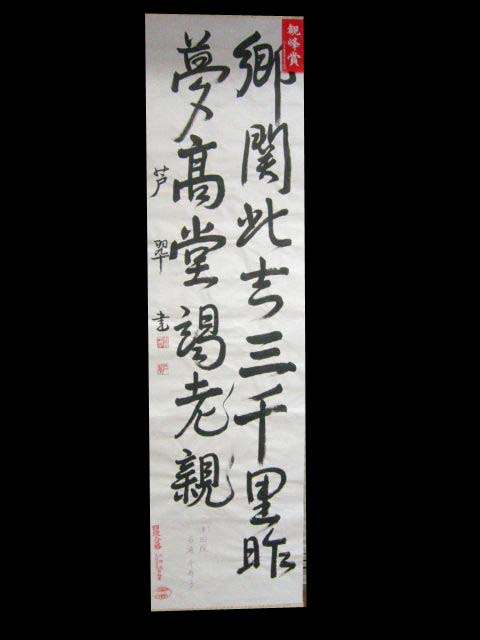 観峰賞
鄉関此去三千里昨
夢高堂謁老親
芦翠書